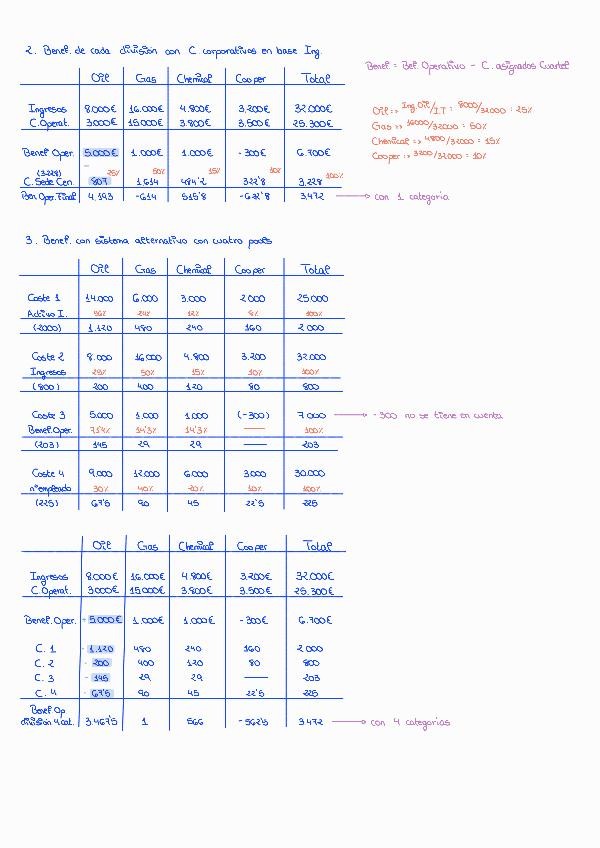 2. Benef. de cada división con C. corporativos en base Ing.
Benef = Bef. Operativo - C. asignados Cuartel
Oil Gas Chemical Cooper Total
Ingresos 8.000€ 16.000€ 4.800€ 3.200€ 32.000€
C. Operat. 3.000€ 15.000€ 3.800€ 3.500€ 25.300€
Oil => Ing.Oil/I.T = 8000/32000 = 25%
Gas => 16000/32000 = 50%
Chemical => 4800/32000 = 15%
Cooper => 3200/32000 = 10%
Benef Oper. 5.000€ 1.000€ 1.000€ -300€ 6.700€
(3228) 25% 50% 15% 10% 100%
C. Sede Cen. 807 1.614 484'2 322'8 3.228
Ben Oper. Final 4.193 -614 515'8 -622'8 3.472 con 1 categoria
3. Benef. con sistema alternativo con cuatro pools
Oil Gas Chemical Cooper Total
Coste 1 14.000 6.000 3.000 2000 25000
Activo I. 56% 24% 12% 8% 100%
(2000) 1.120 480 240 160 2000
Coste 2 8.000 16000 4.800 3.200 32.000
Ingresos 25% 50% 15% 10% 100%
(800) 200 400 120 80 800
Coste 3 5.000 1.000 1.000 (-300) 7000 -300 no se tiene en cuenta
Benef. Oper. 71'4% 14'3% 14'3% — 100%
(203) 145 29 29 — 203
Coste 4 9.000 12.000 6.000 3000 30.000
nº empleado 30% 40% 20% 10% 100%
(225) 67'5 90 45 22'5 225
Oil Gas Chemical Cooper Total
Ingresos 8.000€ 16.000€ 4.800€ 3.200€ 32.000€
C. Operat. 3.000€ 15.000€ 3.800€ 3.500€ 25.300€
Benef. Oper. 5.000€ 1.000€ 1.000€ -300€ 6.700€
C. 1 - 1.120 480 240 160 2000
C. 2 - 200 400 120 80 800
C. 3 - 145 29 29 — 203
C. 4 - 67'5 90 45 22'5 225
Benef Op
división 4 cat. 3.467'5 1 566 -562'5 3472 con 4 categorias